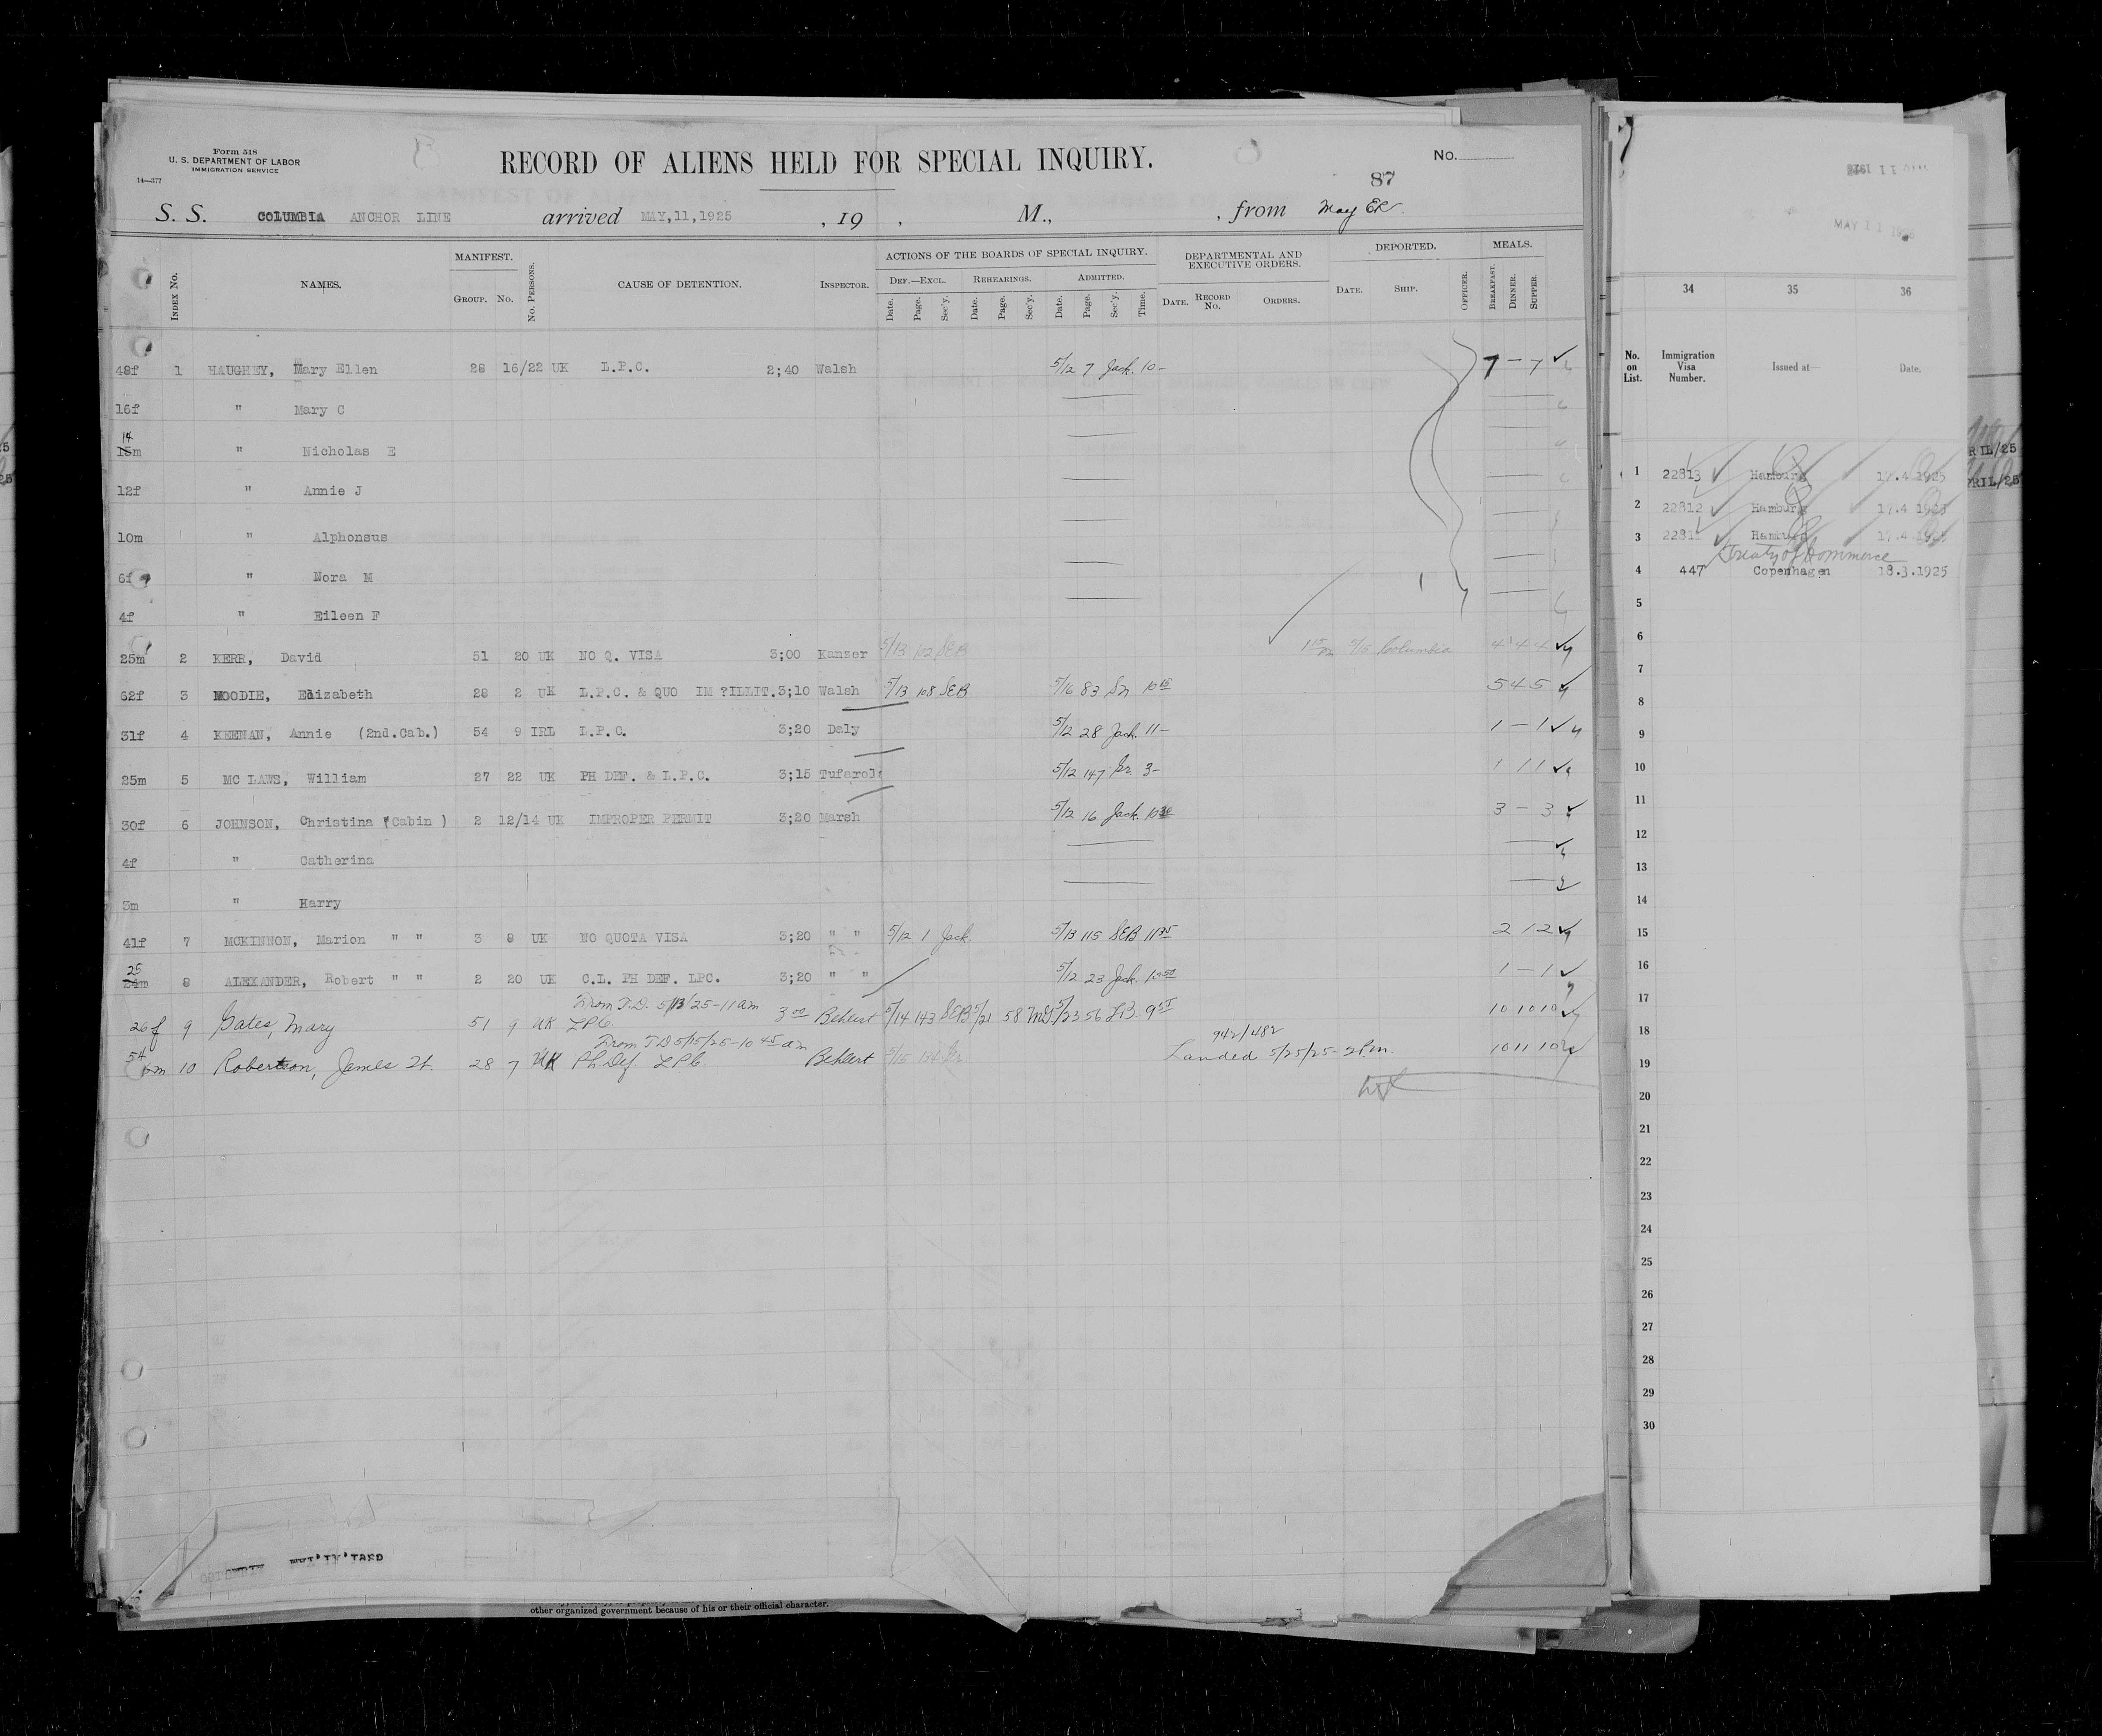 Form 518
U. S. DEPARTMENT OF LABOR
IMMIGRATION SERVICE
14—377
RECORD OF ALIENS HELD FOR SPECIAL INQUIRY.
No.
87
S. S. COLUMBIA ANCHOR LINE arrived MAY,11,1925 , 19 , M., , from
MANIFEST. ACTIONS OF THE BOARDS OF SPECIAL INQUIRY. DEPARTMENTAL AND EXECUTIVE ORDERS. DEPORTED. MEALS.
Index No. NAMES. Group. No. No. Persons. CAUSE OF DETENTION. Inspector. Def.—Excl. Rehearings. Admitted.
Date. Page. Sec'y. Date. Page. Sec'y. Date. Page. Sec'y. Time. Date. Record No. Orders. Date. Ship. Officer. Breakfast. Dinner. Supper.
48f 1 HAUGHEY, Mary Ellen 28 16/22 UK L.P.C. 2;40 Walsh 5/12 7 Jack. 10– 7 – 7
16f " Mary C
14 15m " Nicholas E
12f " Annie J
10m " Alphonsus
6f " Nora M
4f " Eileen F
25m 2 KERR, David 51 20 UK NO Q. VISA 3;00 Kanzer 5/13 102 SEB Columbia 4 4 4
62f 3 MOODIE, Elizabeth 28 2 UK L.P.C. & QUO IM ?ILLIT. 3;10 Walsh 5/13 108 SEB 5/16 83 Sn 10 15 5 4 5
31f 4 KEENAN, Annie (2nd.Cab.) 54 9 IRL L.P.C. 3;20 Daly 5/12 28 Jack. 11– 1 – 1
25m 5 MC LAWS, William 27 22 UK PH DEF. & L.P.C. 3;15 Tufarolo 5/12 147 3– 1 1 1
30f 6 JOHNSON, Christina (Cabin ) 2 12/14 UK IMPROPER PERMIT 3;20 Marsh 5/12 16 Jack. 3 – 3
4f " Catherina
3m " Harry
41f 7 MCKINNON, Marion " " 3 8 UK NO QUOTA VISA 3;20 " " 5/12 1 Jack. 5/13 115 SEB 11 35 2 1 2
25 24m 8 ALEXANDER, Robert " " 2 20 UK C.L. PH DEF. LPC. 3;20 " " 5/12 23 Jack 10 50 1 – 1
From T.D. 5/13/25–11am
26f 9 Gates, Mary 51 9 UK LPC. 3 00 Behlert 5/14 143 SEB 5/21 58 5/23 56 10 10 10
From TD 5/15/25–10 45 am 942/482
54m 10 Robertson, James 28 7 UK Ph Def. LPC. Behlert 5/15 Landed 5/25/25–2P.m. 10 11 10
other organized government because of his or their official character.
MAY 11 1925
34 35 36
No. on List. Immigration Visa Number. Issued at— Date.
1 22813 Hamburg 17.4 1925
2 22812 Hamburg 17.4 1925
3 Hamburg 17.4 1925
Treaty of Commerce
4 447 Copenhagen 18.3.1925
5
6
7
8
9
10
11
12
13
14
15
16
17
18
19
20
21
22
23
24
25
26
27
28
29
30